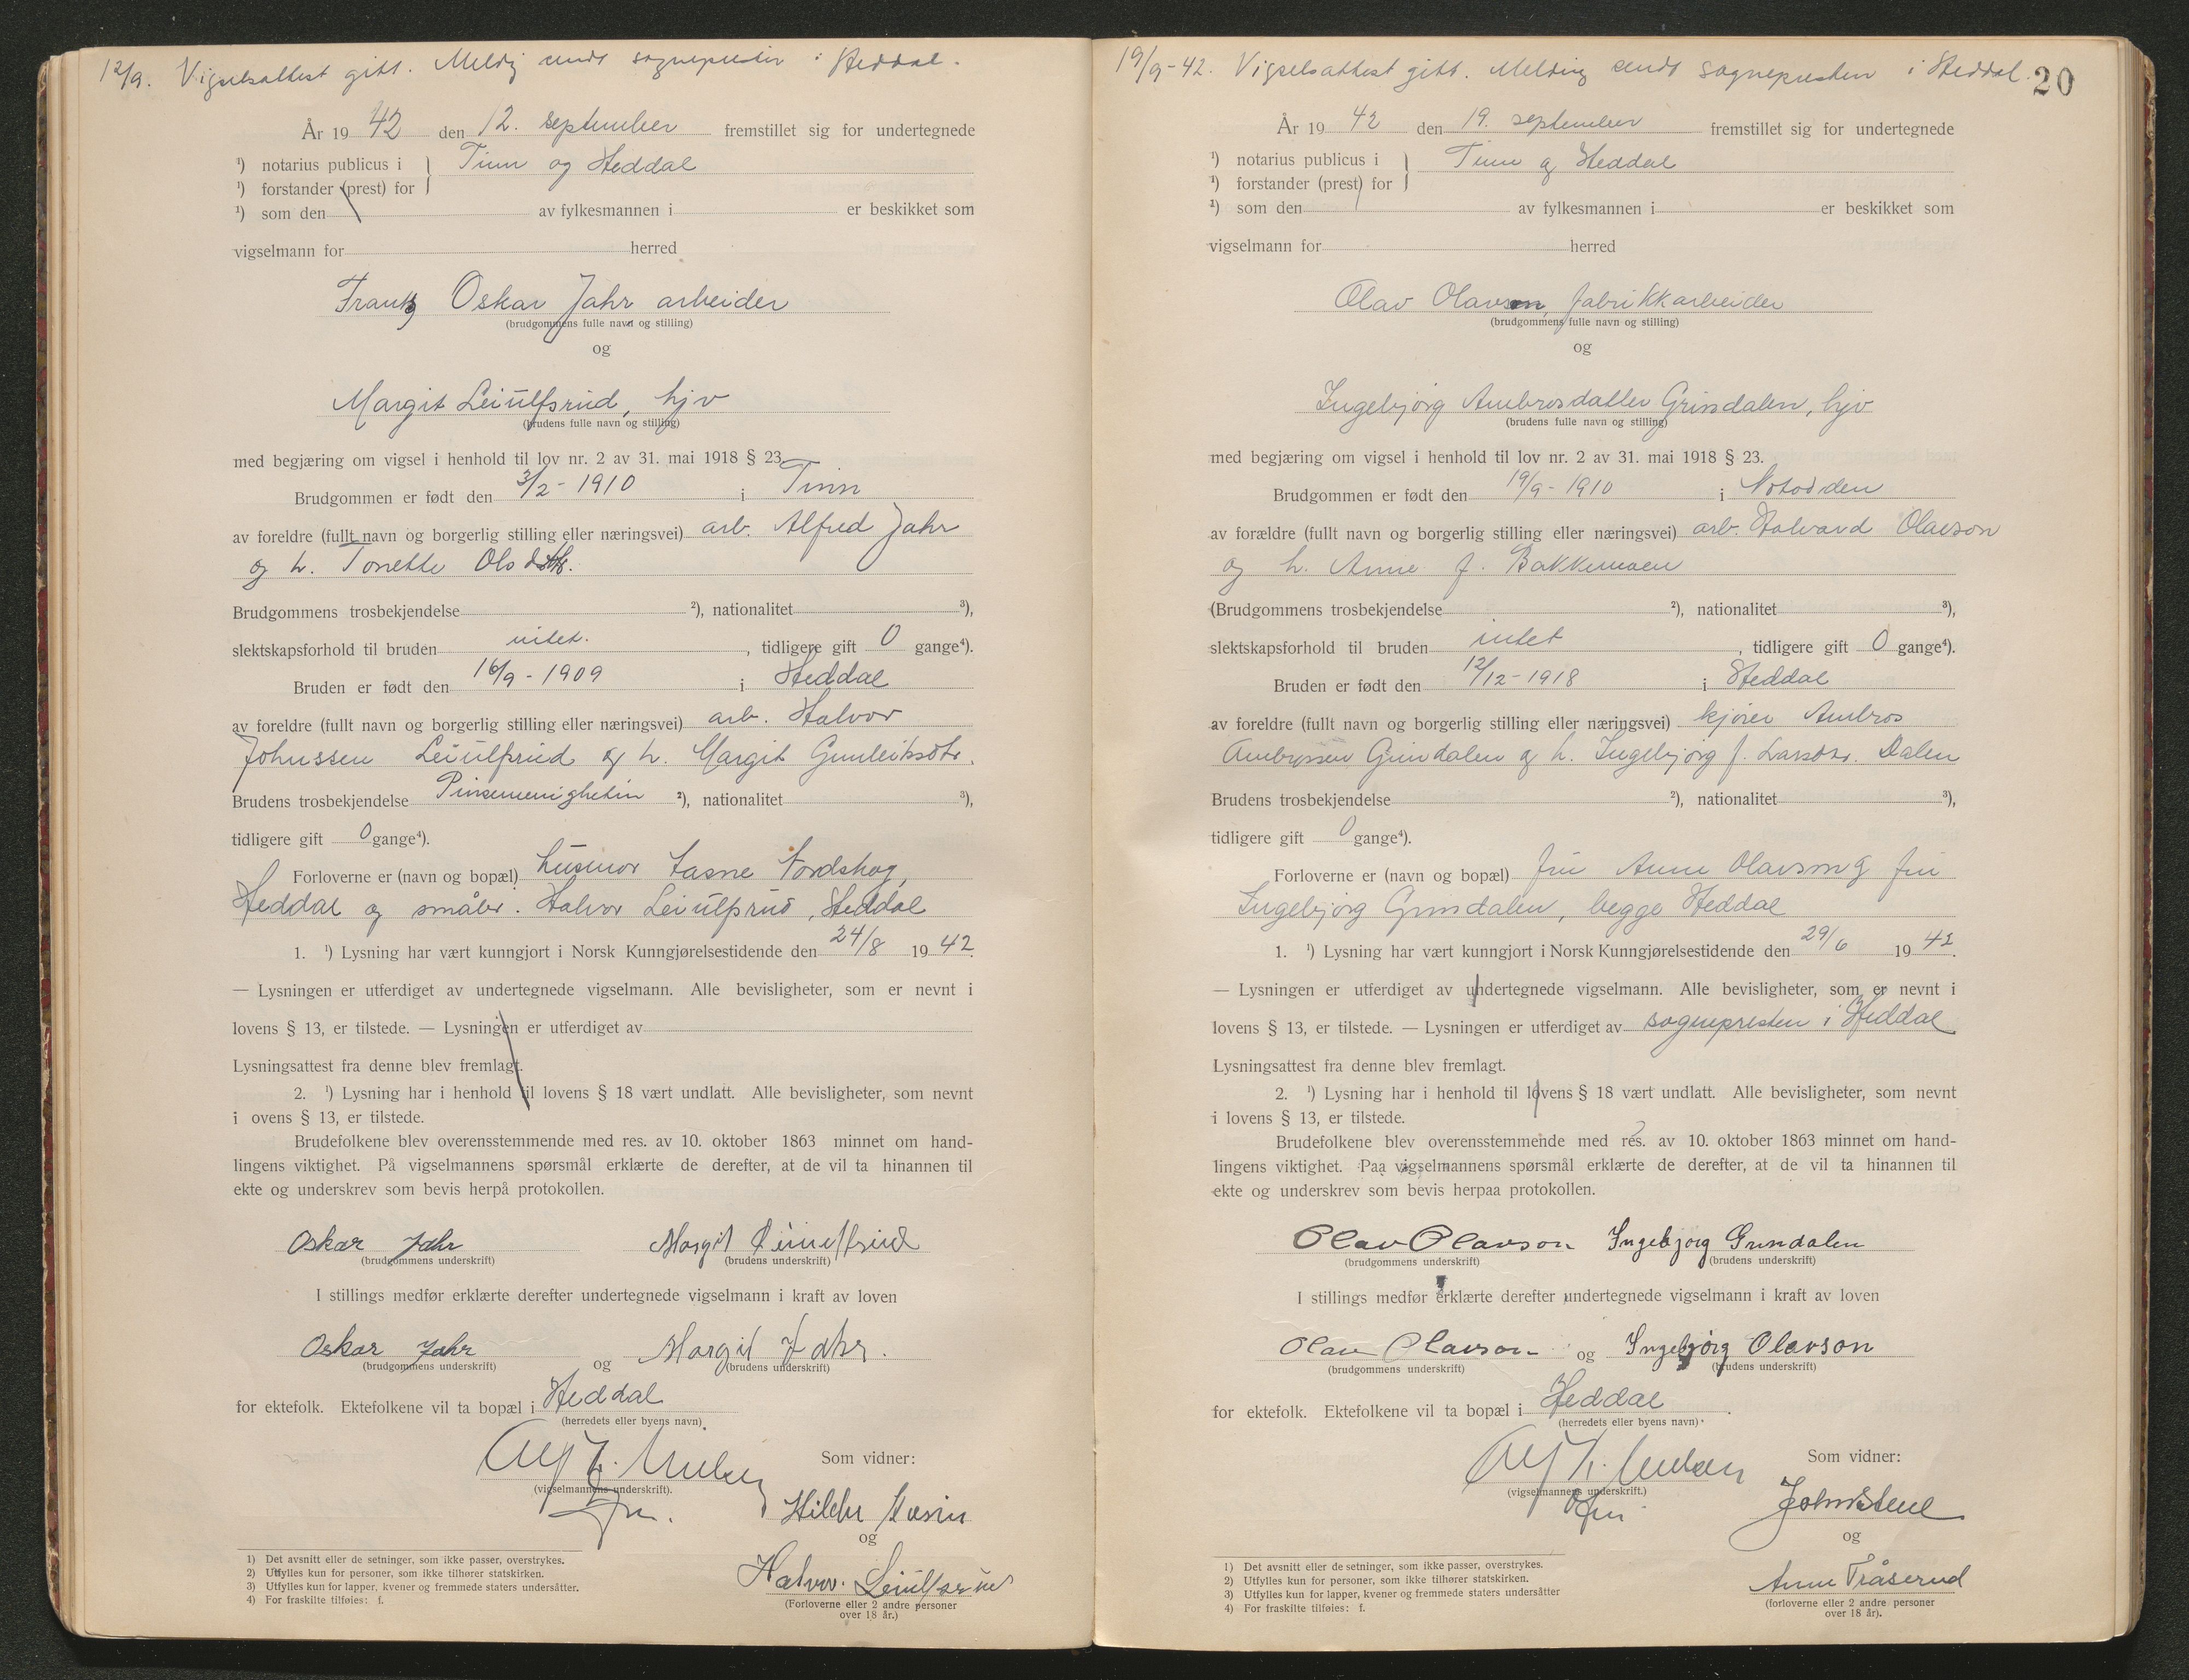 12/9. Vigselsattest gitt. Melding sendt sognepresten i Heddal.
År 19 42 den 12. september fremstillet sig for undertegnede
¹) notarius publicus i } Tinn og Heddal
¹) forstander (prest) for
¹) som den av fylkesmannen i er beskikket som
vigselmann for herred
Frantz Oskar Jahr arbeider
(brudgommens fulle navn og stilling)
og
Margit Leiulfsrud, hjv
(brudens fulle navn og stilling)
med begjæring om vigsel i henhold til lov nr. 2 av 31. mai 1918 § 23.
Brudgommen er født den 3/2 - 1910 i Tinn
av foreldre (fullt navn og borgerlig stilling eller næringsvei) arb. Alfred Jahr
og h. Tonette
Brudgommens trosbekjendelse ²), nationalitet ³),
slektskapsforhold til bruden intet. , tidligere gift 0 gange⁴).
Bruden er født den 16/9 - 1909 i Heddal
av foreldre (fullt navn og borgerlig stilling eller næringsvei) arb. Halvor
Johnssen Leiulfsrud og h. Margit Gunleiksdtr.
Brudens trosbekjendelse Pinsemenigheten ²), nationalitet ³),
tidligere gift 0 gange⁴).
Forloverne er (navn og bopæl) husmor Nordskog,
Heddal og småbr. Halvor Leiulfsrud, Heddal
1. ¹) Lysning har vært kunngjort i Norsk Kunngjørelsestidende den 24/8 19 42.
— Lysningen er utferdiget av undertegnede vigselmann. Alle bevisligheter, som er nevnt i
lovens § 13, er tilstede. — Lysningen er utferdiget av
Lysningsattest fra denne blev fremlagt.
2. ¹) Lysning har i henhold til lovens § 18 vært undlatt. Alle bevisligheter, som nevnt
i ovens § 13, er tilstede.
Brudefolkene blev overensstemmende med res. av 10. oktober 1863 minnet om hand-
lingens viktighet. På vigselmannens spørsmål erklærte de derefter, at de vil ta hinannen til
ekte og underskrev som bevis herpå protokollen.
Oskar Jahr Margit Leiulfsrud
(brudgommens underskrift) (brudens underskrift)
I stillings medfør erklærte derefter undertegnede vigselmann i kraft av loven
Oskar Jahr og Margit Jahr.
(brudgommens underskrift) (brudens underskrift)
for ektefolk. Ektefolkene vil ta bopæl i Heddal
(herredets eller byens navn).
Som vidner:
(vigselmannens underskrift).
og
Halvor Leiulfsrud
(Forloverne eller 2 andre personer
over 18 år.)
1) Det avsnitt eller de setninger, som ikke passer, overstrykes.
2) Utfylles kun for personer, som ikke tilhører statskirken.
3) Utfylles kun for lapper, kvener og fremmede staters undersåtter.
4) For fraskilte tilføies: f.
19/9-42. Vigselsattest gitt. Melding sendt sognepresten i Heddal.
20
År 19 42 den 19. september fremstillet sig for undertegnede
¹) notarius publicus i } Tinn og Heddal
¹) forstander (prest) for
²) som den av fylkesmannen i er beskikket som
vigselmann for herred
Olav Olavson, fabrikkarbeider
(brudgommens fulle navn og stilling)
og
Ingebjørg Ambrosdatter Grindalen, hjv
(brudens fulle navn og stilling)
med begjæring om vigsel i henhold til lov nr. 2 av 31. mai 1918 § 23.
Brudgommen er født den 19/9 - 1910 i Notodden
av forældre (fullt navn og borgerlig stilling eller næringsvei) arb. Halvard Olavson
og h. Anne f. Bakkemoen
(Brudgommens trosbekjendelse ²), nationalitet ³),
slektskapsforhold til bruden intet , tidligere gift 0 gange⁴).
Bruden er født den 12/12 - 1918 i Heddal
av foreldre (fullt navn og borgerlig stilling eller næringsvei) kjører Ambros
Ambrossen Grindalen og h. Ingebjørg f. Larsdtr. Dalen
Brudens trosbekjendelse ²), nationalitet ³),
tidligere gift 0 gange⁴).
Forloverne er (navn og bopæl) fru Anne Olavson og fru
Ingebjørg Grindalen, begge Heddal
1. ¹) Lysning har vært kunngjort i Norsk Kunngjørelsestidende den 29/6 19 42.
— Lysningen er utferdiget av undertegnede vigselmann. Alle bevisligheter, som er nevnt i
lovens § 13, er tilstede. — Lysningen er utferdiget av sognepresten i Heddal
Lysningsattest fra denne blev fremlagt.
2. ¹) Lysning har i henhold til lovens § 18 vært undlatt. Alle bevisligheter, som nevnt
i lovens § 13, er tilstede.
Brudefolkene blev overensstemmende med res. av 10. oktober 1863 minnet om hand-
lingens viktighet. Paa vigselmannens spørsmål erklærte de derefter, at de vil ta hinannen til
ekte og underskrev som bevis herpaa protokollen.
Olav Olavson Ingebjørg Grindalen
(brudgommens underskrift) (brudens underskrift)
I stillings medfør erklærte derefter undertegnede vigselmann i kraft av loven
Olav Olavson og Ingebjørg Olavson
(brudgommens underskrift) (brudens underskrift)
for ektefolk. Ektefolkene vil ta bopæl i Heddal.
(herredets eller byens navn)
Som vidner:
(vigselmannens underskrift.)
og
Anne Tråserud
(forloverne eller 2 andre personer
over 18 år).
1) Det avsnitt eller de setninger, som ikke passer, overstrykes.
2) Utfylles kun for personer, som ikke tilhører statskirken.
3) Utfylles kun for lapper, kvener og fremmede staters undersåtter
4) For fraskilte tilføies: f.